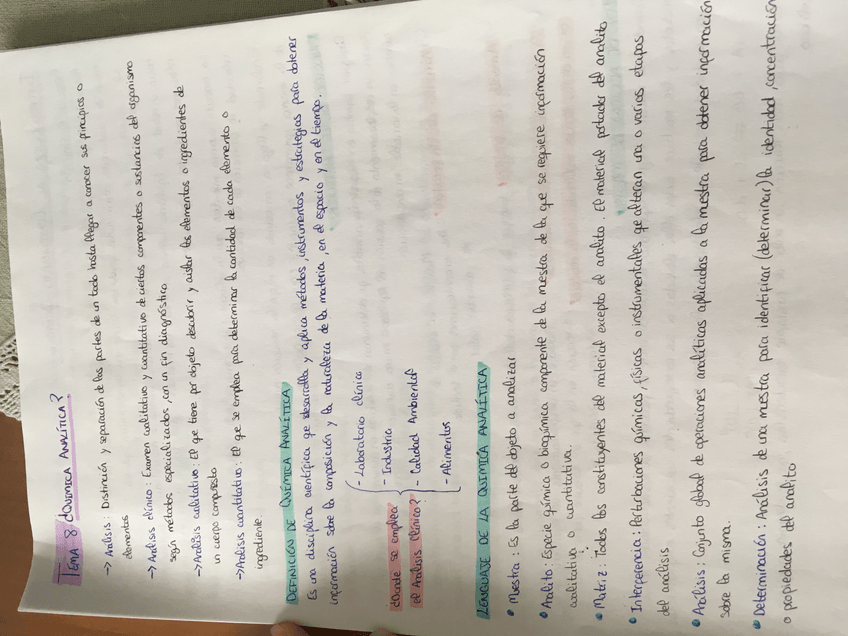 TEMA 8 ¿QUIMICA ANALÍTICA?
→ Análisis : Distinción y separación de las partes de un todo hasta llegar a conocer sus principios o
elementos
→ Análisis clínico : Examen cualitativo y cuantitativo de ciertos componentes o sustancias del organismo
según métodos especializados, con un fin diagnóstico
→ Análisis cualitativo : El que tiene por objeto descubrir y aislar los elementos o ingredientes de
un cuerpo compuesto
→ Análisis cuantitativo : El que se emplea para determinar la cantidad de cada elemento o
ingrediente.
DEFINICIÓN DE QUÍMICA ANALÍTICA
Es una disciplina científica que desarrolla y aplica métodos, instrumentos y estrategias para obtener
información sobre la composición y la naturaleza de la materia, en el espacio y en el tiempo.
¿Dónde se emplea
el Análisis Clínico?
- Laboratorio clínico
- Industria
- Calidad Ambiental
- Alimentos
LENGUAJE DE LA QUÍMICA ANALÍTICA
• Muestra : Es la parte del objeto a analizar
• Analito : Especie química o bioquímica componente de la muestra de la que se requiere información
cualitativa o cuantitativa.
• Matriz : Todos los constituyentes del material excepto el analito. El material portador del analito
• Interferencia : Perturbaciones químicas, físicas o instrumentales que alteran una o varias etapas
del análisis
• Análisis : Conjunto global de operaciones analíticas aplicadas a la muestra para obtener información
sobre la misma.
• Determinación : Análisis de una muestra para identificar (determinar) la identidad, concentración
o propiedades del analito